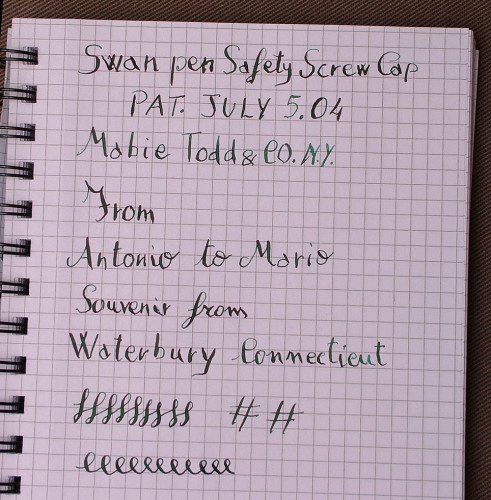 Swan pen Safety Screw Cap
PAT. JULY 5.04
Mabie Todd & CO. N.Y.
From
Antonio to Mario
Souvenir from
Waterbury Connecticut
fffffffff # #
eeeeeeeeeee